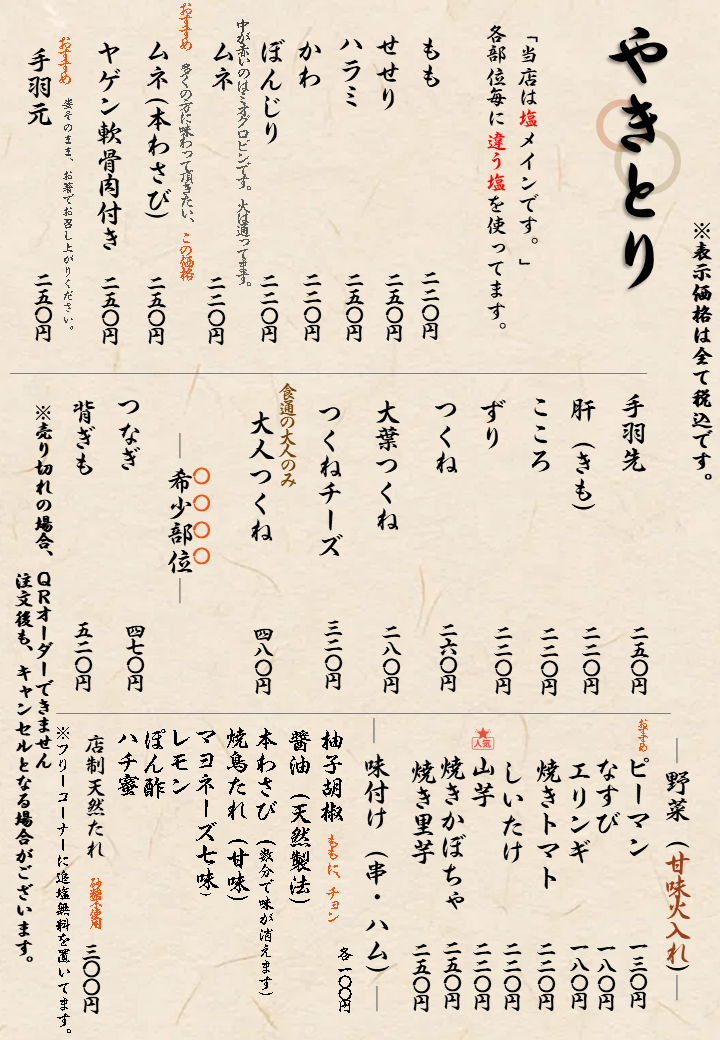 ※表示価格は全て税込です。
やきとり
「当店は塩メインです。」
各部位毎に違う塩を使ってます。
もも 二二〇円
せせり 二五〇円
ハラミ 二五〇円
かわ 二二〇円
ぼんじり 二二〇円
中が赤いのはミオグロビンです。火は通ってます。
ムネ 二二〇円
おすすめ 多くの方に味わって頂きたい、この価格
ムネ(本わさび) 二五〇円
ヤゲン軟骨肉付き 二五〇円
おすすめ 姿そのまま、お箸でお召し上がりください。
手羽元 二五〇円
手羽先 二五〇円
肝(きも) 二二〇円
こころ 二二〇円
ずり 二二〇円
つくね 二六〇円
大葉つくね 二八〇円
つくねチーズ 三二〇円
食通の大人のみ
大人つくね 四八〇円
希少部位
つなぎ 四七〇円
背ぎも 五二〇円
※売り切れの場合、QRオーダーできません
注文後も、キャンセルとなる場合がございます。
野菜(甘味火入れ)
おすすめ
ピーマン 一三〇円
なすび 一八〇円
エリンギ 一八〇円
焼きトマト 二二〇円
しいたけ 二二〇円
人気
山芋 二二〇円
焼きかぼちゃ 二五〇円
焼き里芋 二五〇円
味付け(串・ハム)
柚子胡椒 ももに、チョン 各一〇〇円
醤油(天然製法)
本わさび(数分で味が消えます)
焼鳥たれ(甘味)
マヨネーズ七味)
レモン
ぽん酢
ハチ蜜
店制天然たれ 砂糖不使用 三〇〇円
※フリーコーナーに追塩無料を置いてます。